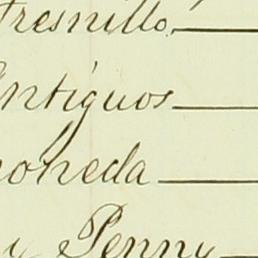 Fresnillo
Antiguos
oneda
y Penny